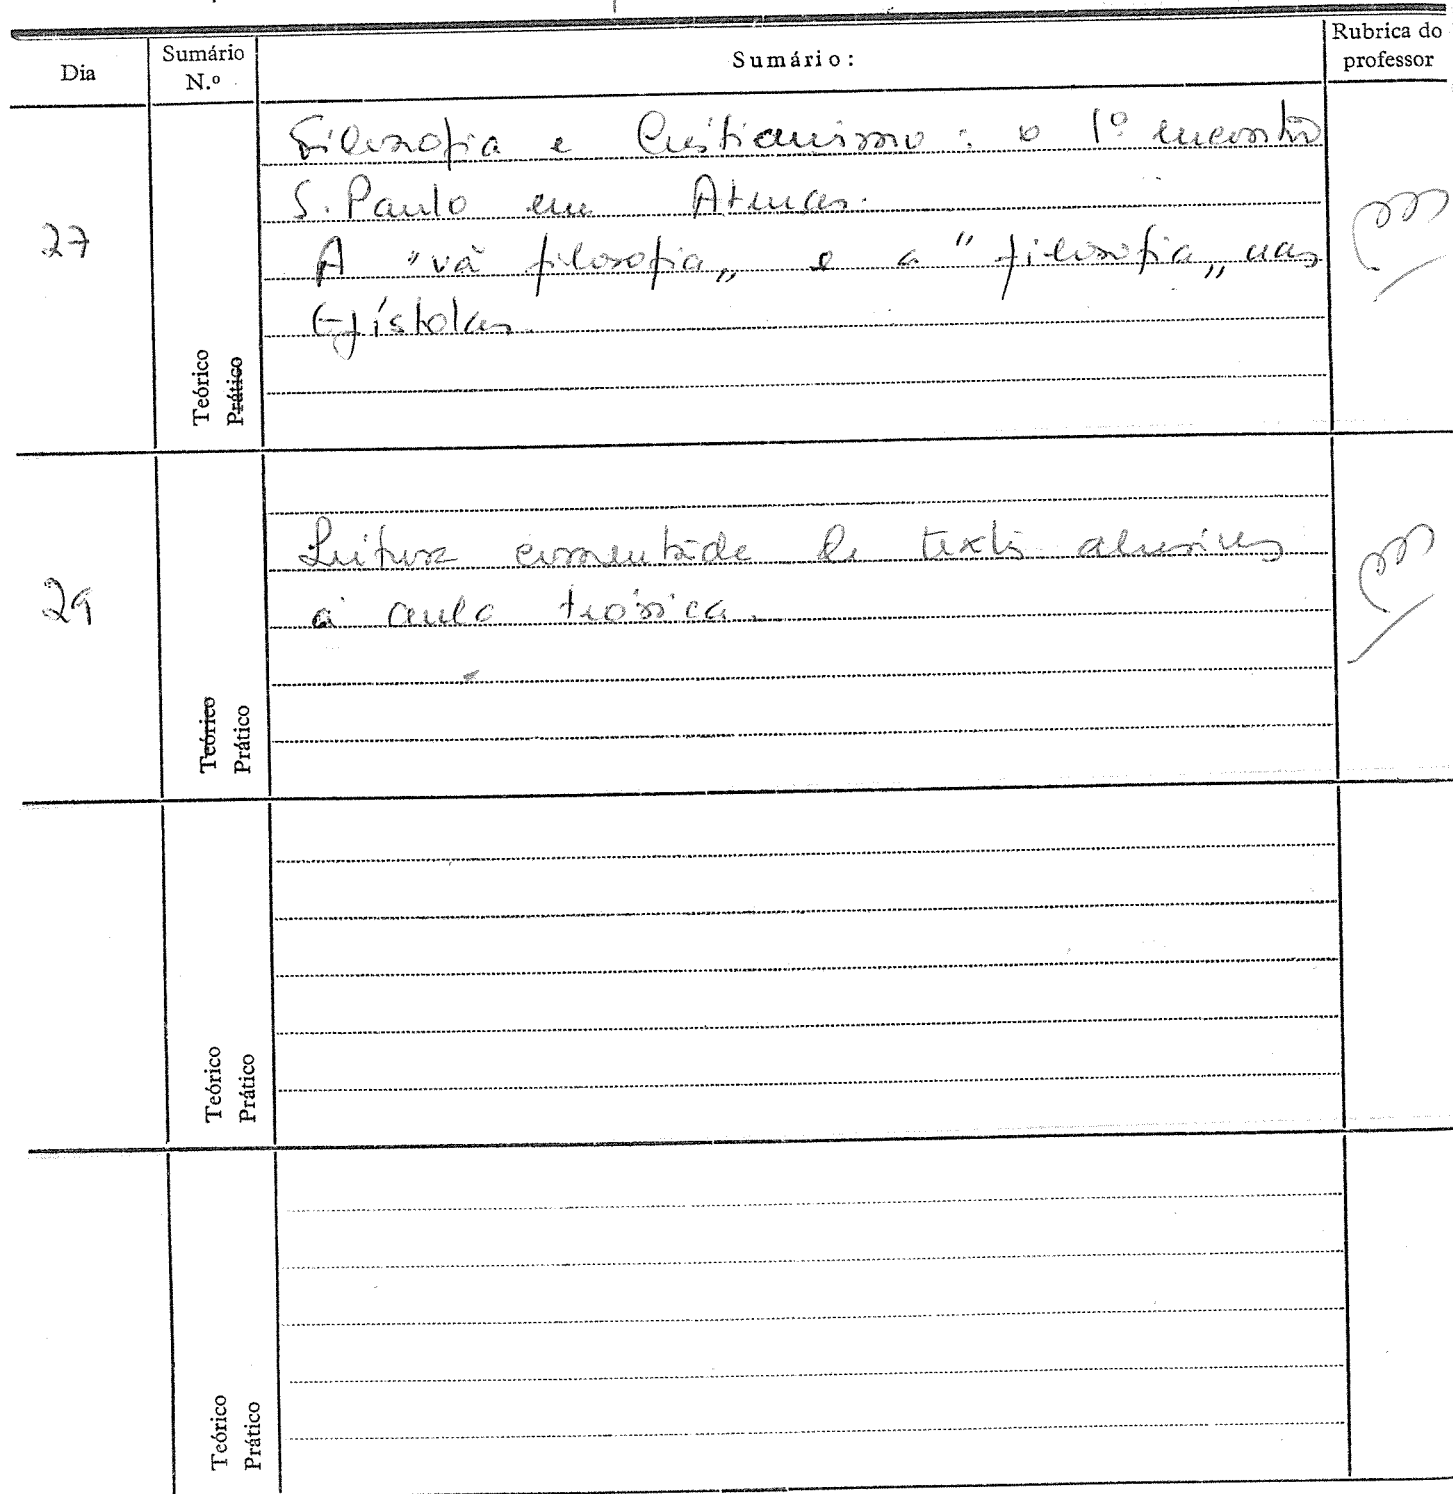 Dia
Sumário
N.º
Sumário:
Rubrica do
professor
27
Teórico
Prático
Filosofia e Cristianismo: o 1º encontro
S. Paulo em Atenas.
A "vã filosofia„ e a "filosofia„ nas
Epístolas.
29
Teórico
Prático
Leitura comentada de textos alusivos
à aula teórica.
Teórico
Prático
Teórico
Prático